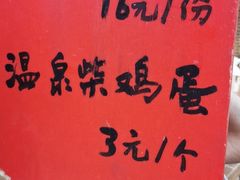 16元/份
温泉柴鸡蛋
3元/个